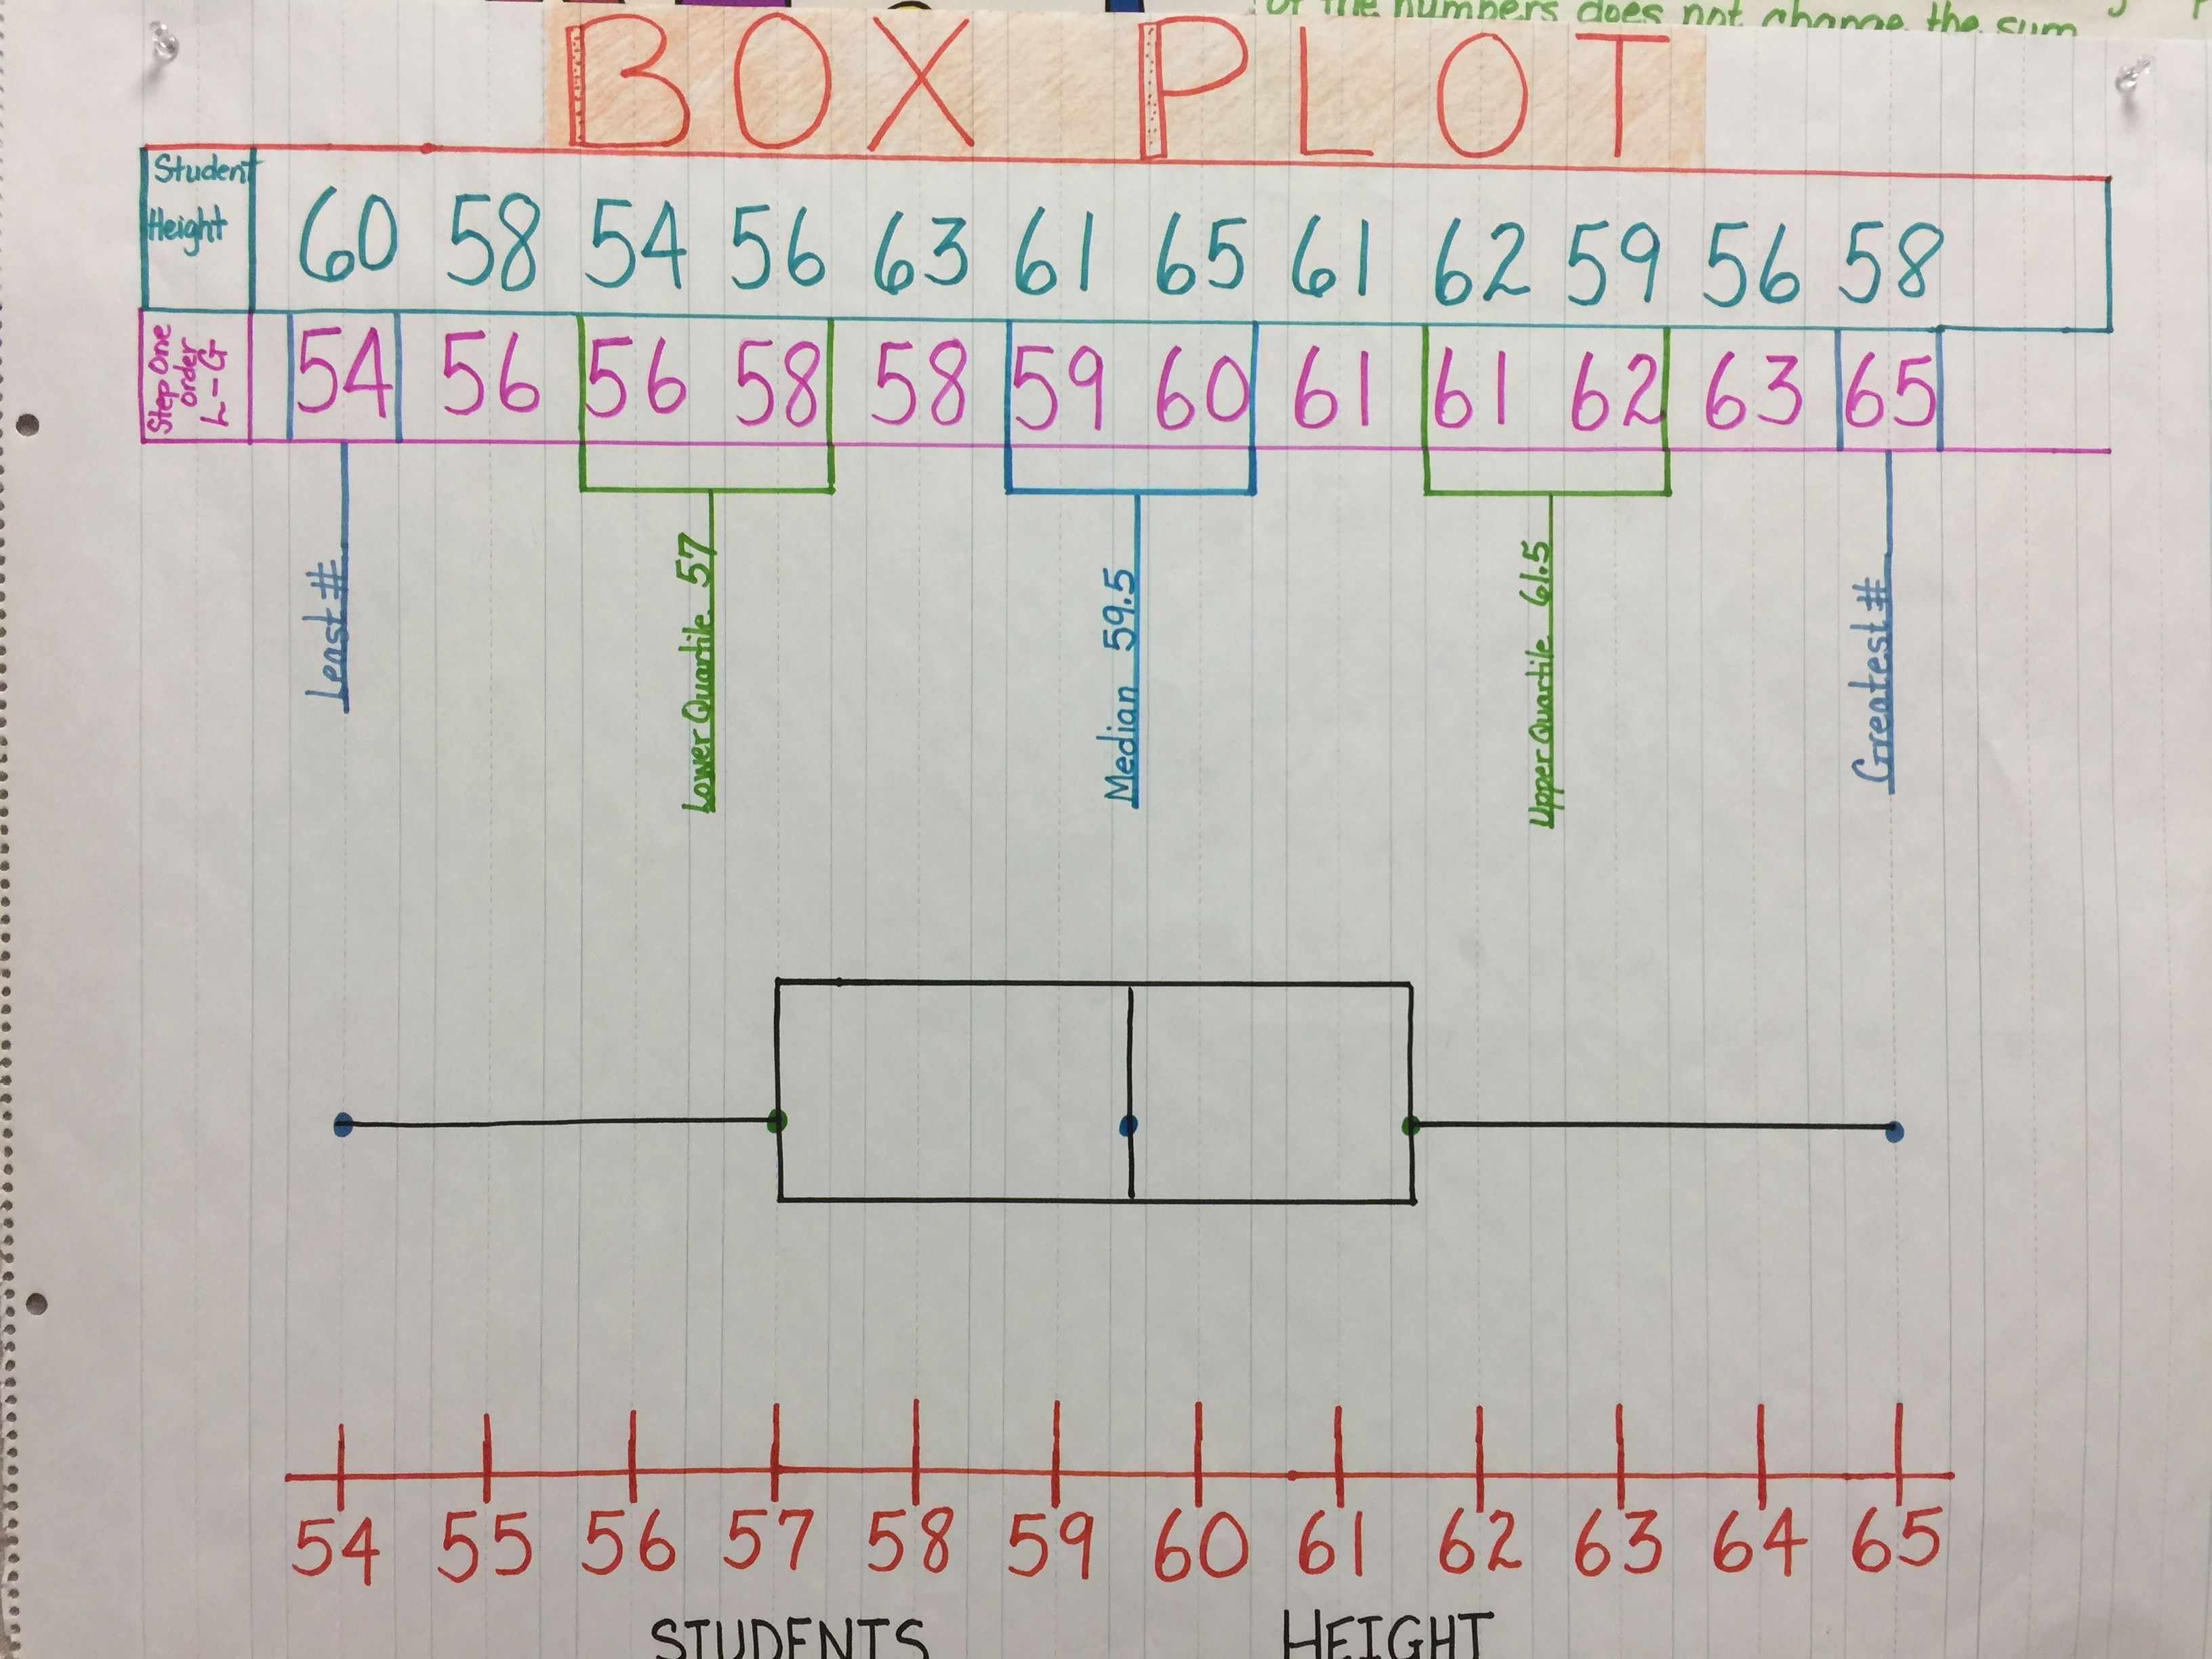 of the numbers does not change the sum
BOX PLOT
Student
Height
60 58 54 56 63 61 65 61 62 59 56 58
Step One
Order
L-G
54 56 56 58 58 59 60 61 61 62 63 65
Least #
Lower Quartile 57
Median 59.5
Upper Quartile 61.5
Greatest #
54 55 56 57 58 59 60 61 62 63 64 65
STUDENTS HEIGHT